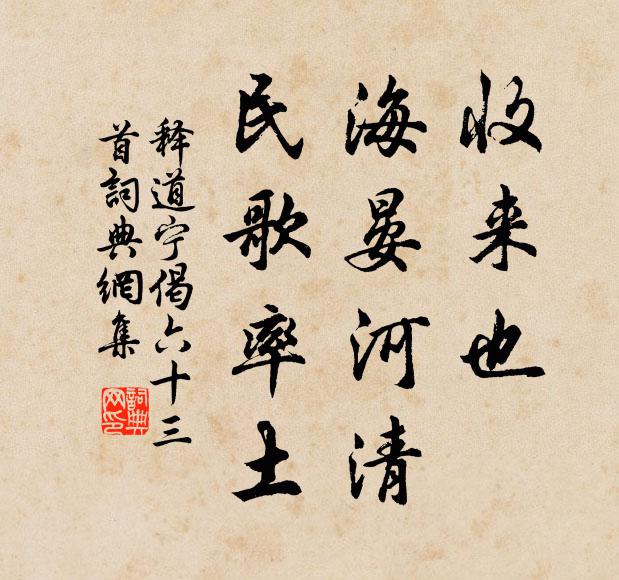 收来也
海晏河清
民歌率土
释道宁偈六十三
首詞典網集
詞典
网印